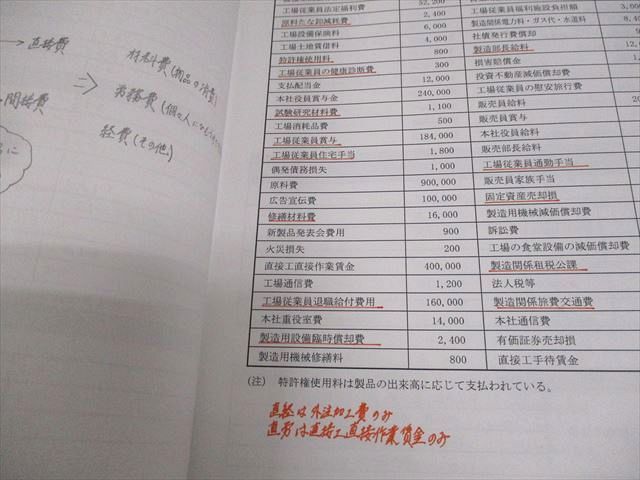 → 直接費
間接費
⇒
材料費(物品の消費)
労務費(個人に
経費(その他)
に
工場従業員法定福利費 52,200 工場従業員福利施設負担額 3,00
原料たな卸減耗費 2,400 製造関係電力料・ガス代・水道料 8,
工場設備保険料 6,000 社債発行費償却
工場土地賃借料 4,000 製造部長給料
特許権使用料 800 損害賠償金
工場従業員の健康診断費 300 投資不動産減価償却費
支払配当金 12,000 工場従業員の慰安旅行費
本社役員賞与金 240,000 販売員給料
試験研究材料費 1,100 販売員賞与
工場消耗品費 500 本社役員給料
工場従業員賞与 184,000 販売部長給料
工場従業員住宅手当 1,800 工場従業員通勤手当
偶発債務損失 1,000 販売員家族手当
原料費 900,000 固定資産売却損
広告宣伝費 100,000 製造用機械減価償却費
修繕材料費 16,000 訴訟費
新製品発表会費用 900 工場の食堂設備の減価償却費
火災損失 200 製造関係租税公課
直接工直接作業賃金 400,000 法人税等
工場通信費 1,200 製造関係旅費交通費
工場従業員退職給付費用 160,000 本社通信費
本社重役室費 14,000 有価証券売却損
製造用設備臨時償却費 2,400 直接工手待賃金
製造用機械修繕料 800
(注) 特許権使用料は製品の出来高に応じて支払われている。
直経は外注加工費のみ
直労は直接工直接作業賃金のみ